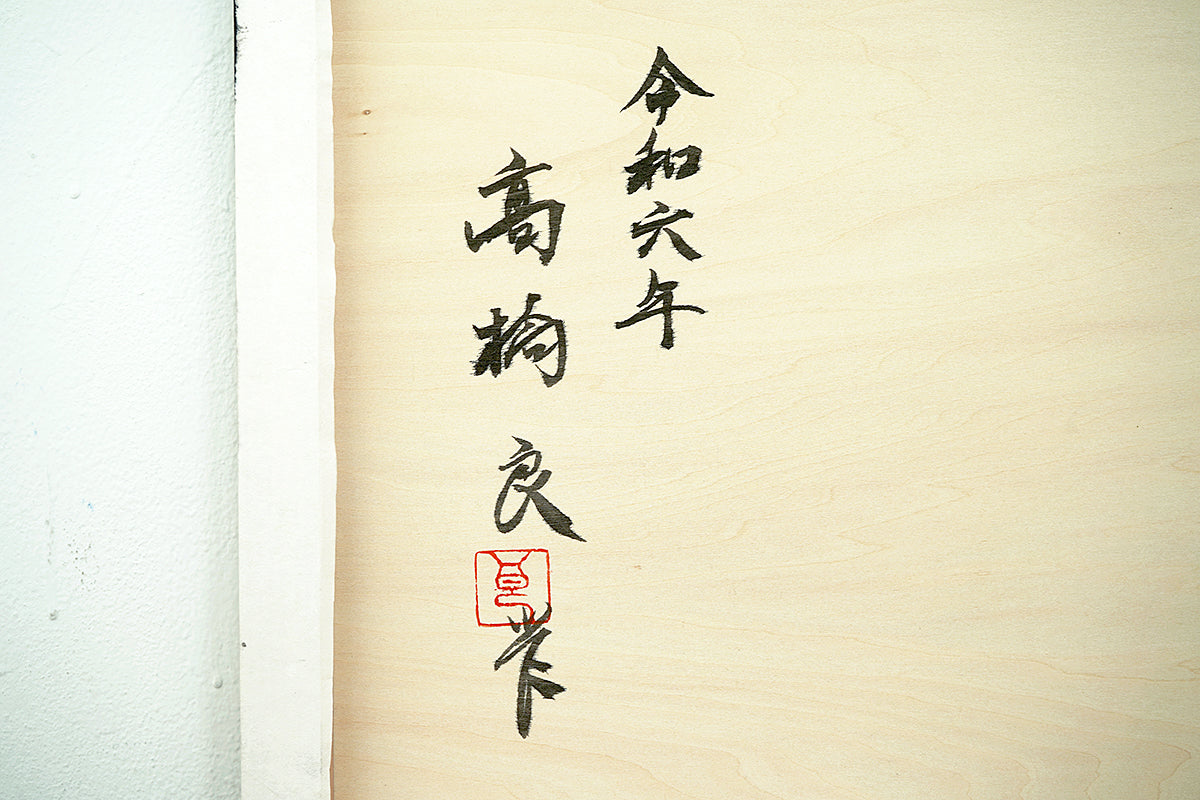 令和六年
高橋 良